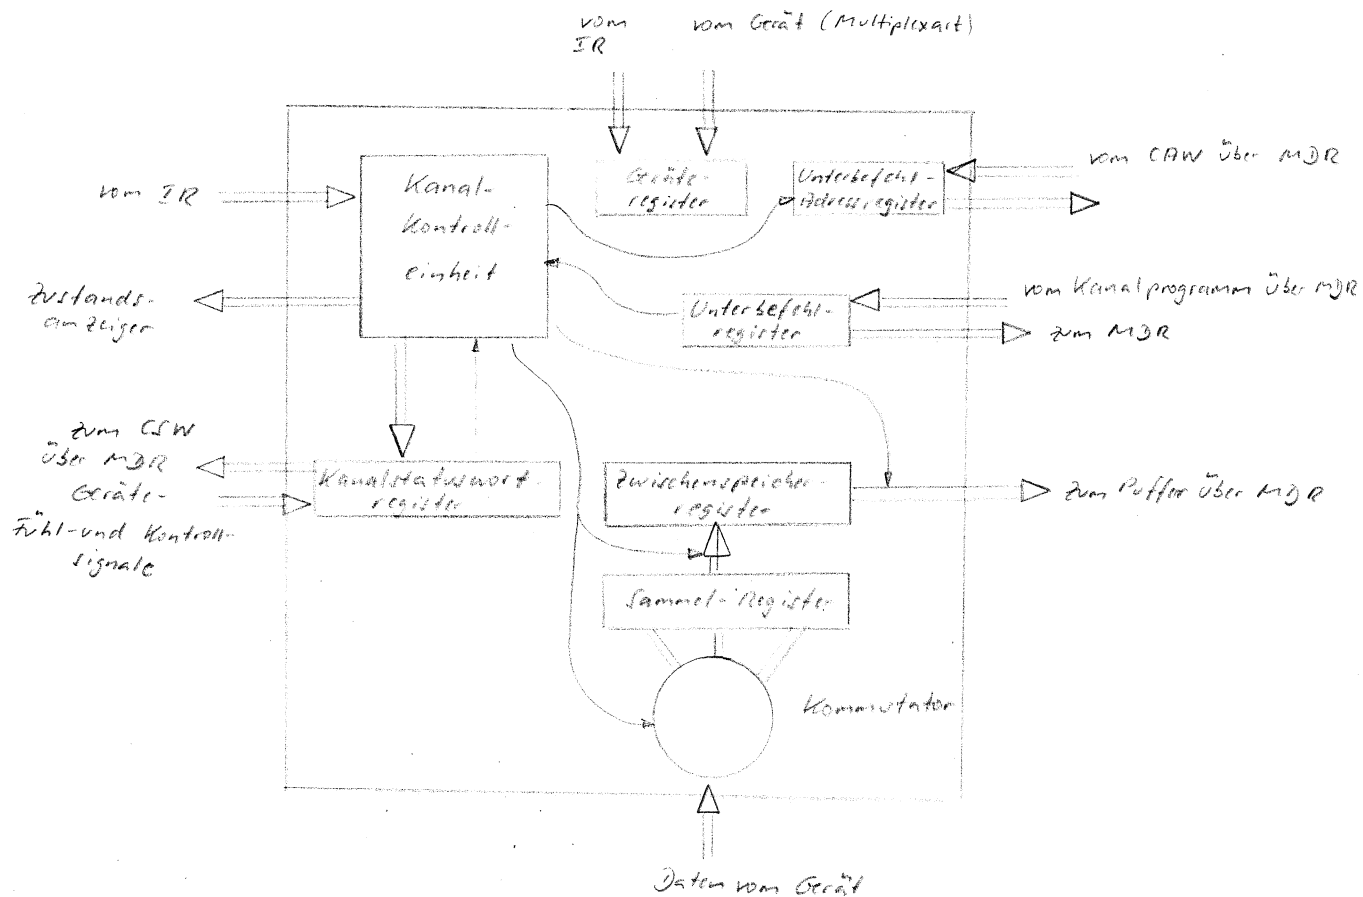 vom
IR
vom Gerät (Multiplexart)
vom IR
Kanal-
Kontroll-
einheit
Geräte-
register
Unterbefehl-
Adressregister
vom CAW über MDR
Zustands-
anzeiger
Unterbefehl-
register
vom Kanalprogramm über MDR
zum MDR
zum CSW
über MDR
Geräte-
Fühl-und Kontroll-
signale
Kanalstatuswort-
register
Zwischenspeicher-
register
zum Puffer über MDR
Sammel-Register
Kommutator
Daten vom Gerät